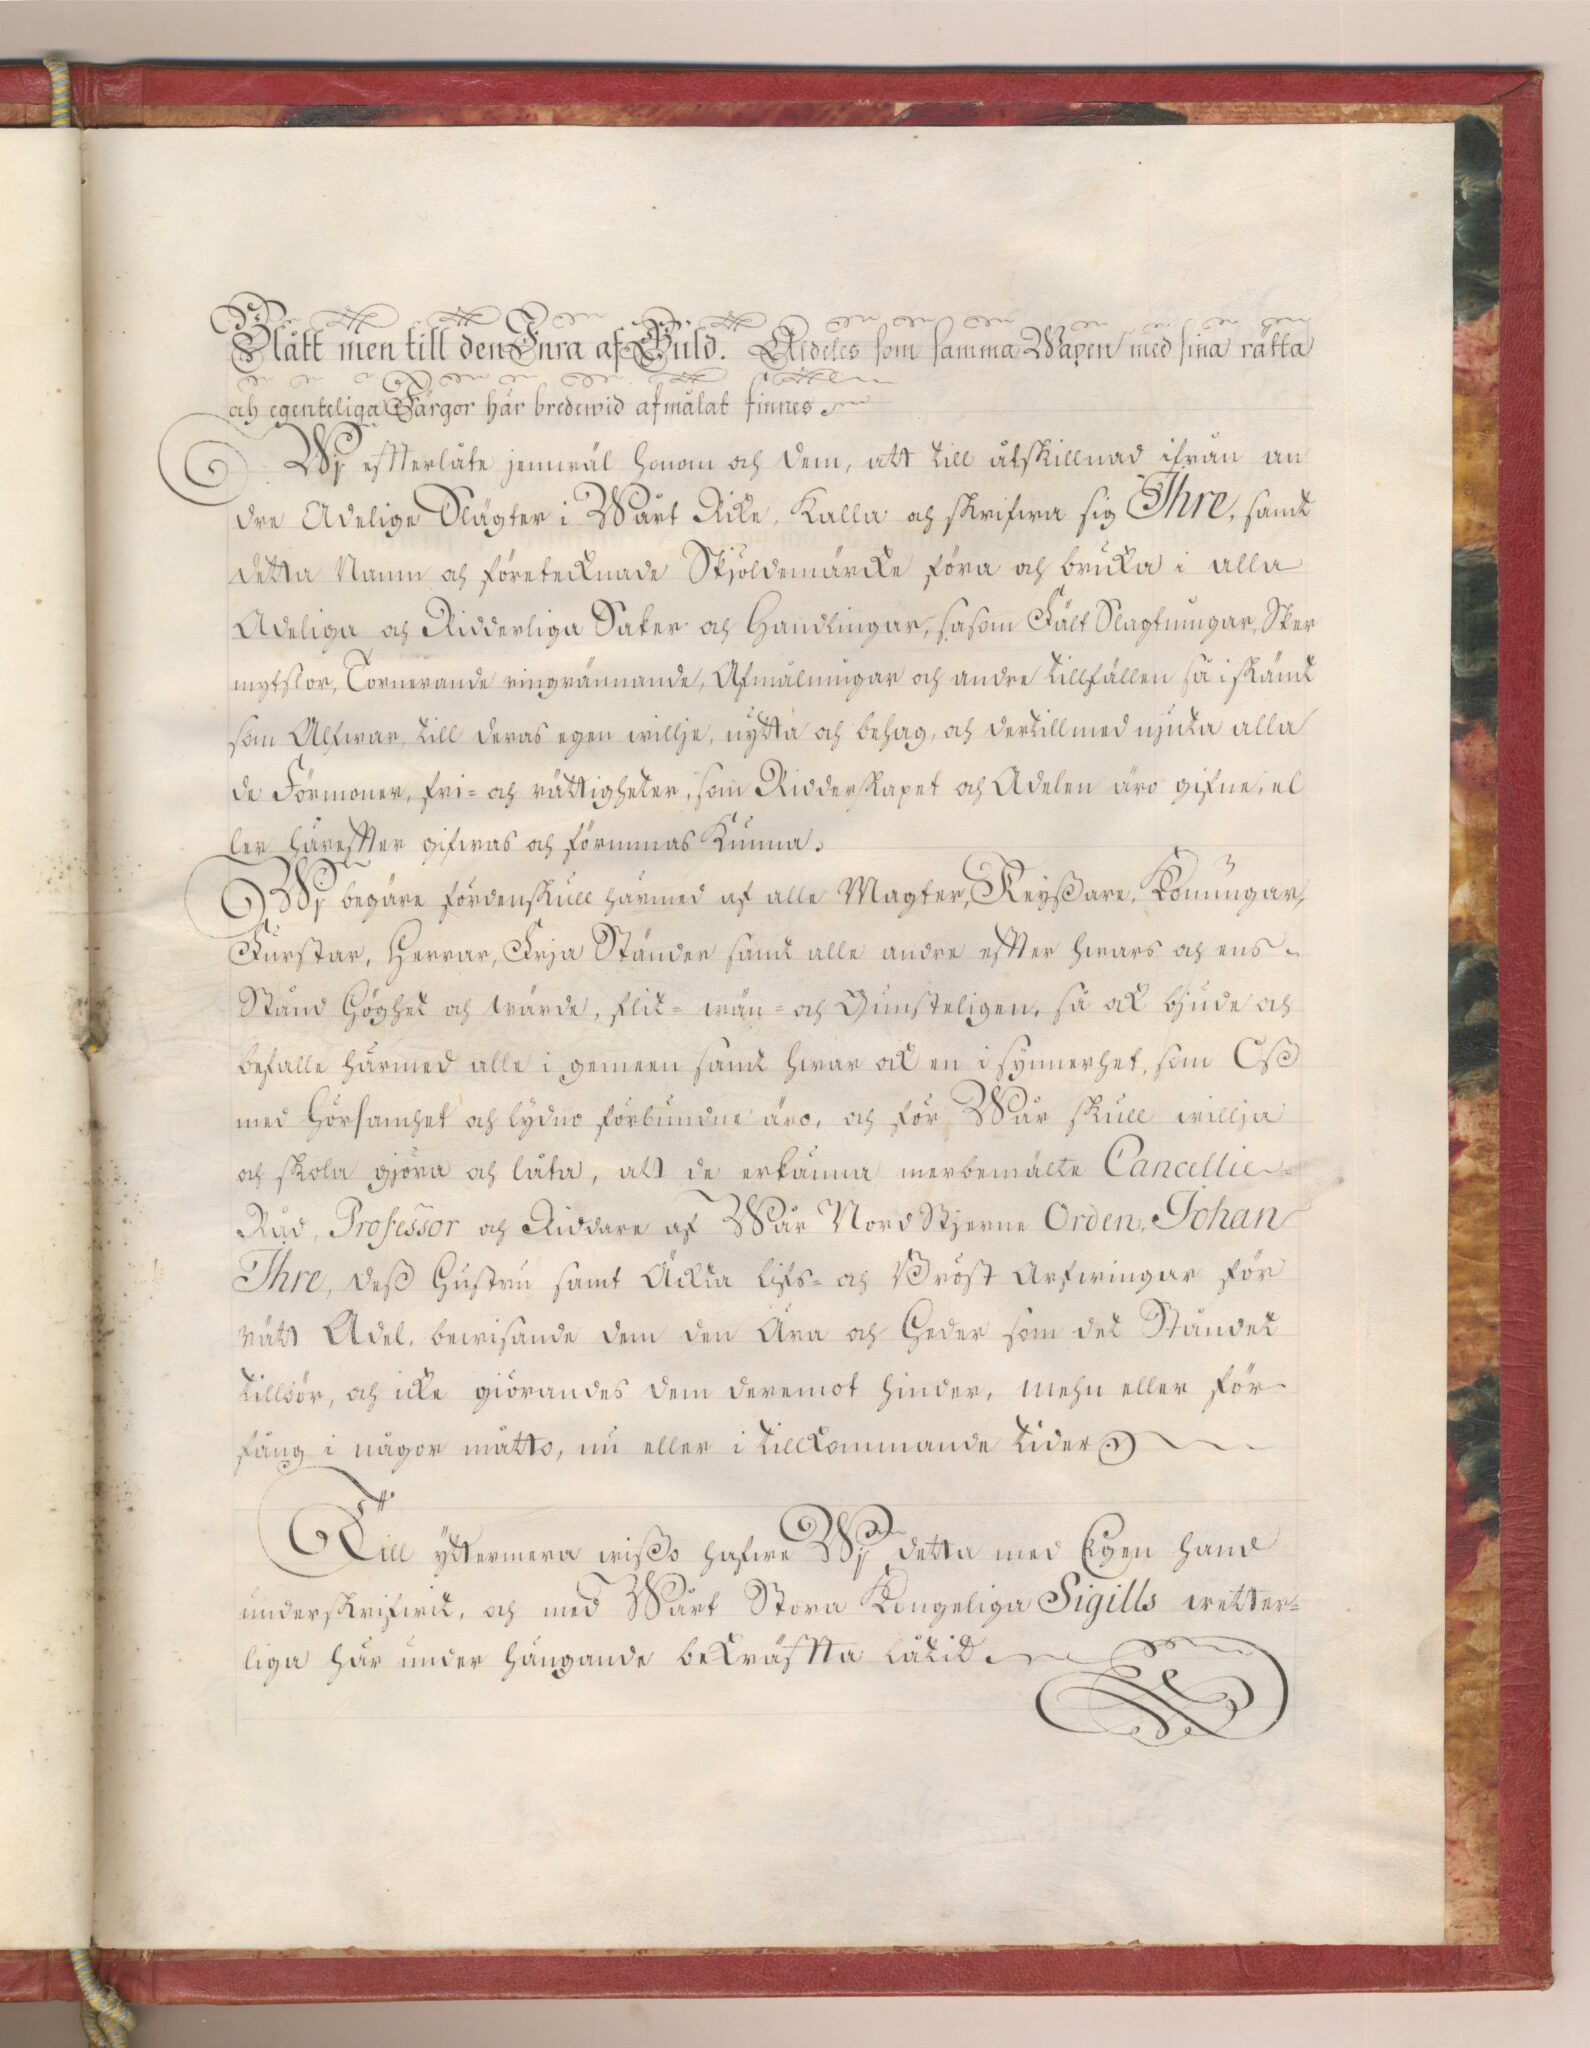 Blått men till den Inra af Guld. Aldeles som samma Wapen med sina rätta
och egenteliga Färgor här bredewid afmålat finnes.
Wj effterlåte jemwäl honom och dem, att till åtskillnad ifrån an
dre Adelige Slägter i Wårt Rike, kalla och skrifwa sig Ihre, samt
detta Namn och företecknade Skjöldemärcke föra och bruka i alla
Adeliga och Ridderliga Saker och Handlingar, såsom Fält Slagtningar, Sker
mytslor, Tornerande ringrännande, Afmålningar och andre tillfällen så i skämt
som Alfwar, till deras egen willje, nytta och behag, och dertillmed njuta alla
de Förmoner, fri- och rättigheter, som Ridderskapet och Adelen äro gifne, el
ler härefter gifwas och förunnas kunna.
Wj begäre fördenskull härmed af alle Magter, Keyßare, Konungar,
Furstar, Herrar, Frja Ständer samt alle andre effter hwars och ens
Stånd Höghet och wärde, flit- wän- och Gunsteligen, så ock bjude och
befalle härmed alle i gemeen samt hwar ock en i synnerhet, som Oß
med Hörsamhet och lydno förbundne äro, och för Wår skull willja
och skola gjöra och låta, att de erkänna merbemälte Cancellie-
Råd, Professor och Riddare af Wår Nord Stjerne Orden, Johan
Ihre, deß Hustru samt Äckta lifs- och Bröst Arfwingar för
rätt Adel, bewisande dem den Ära och Heder som det Ståndet
tillhör, och icke giörandes dem deremot hinder, mehn eller för
fång i någor måtto, nu eller i tillkommande tider
Till yttermera wißo hafwe Wj detta med Egen hand
underskrifwit, och med Wårt Stora Kongeliga Sigills wetter-
liga här under hängande bekräffta låtit.